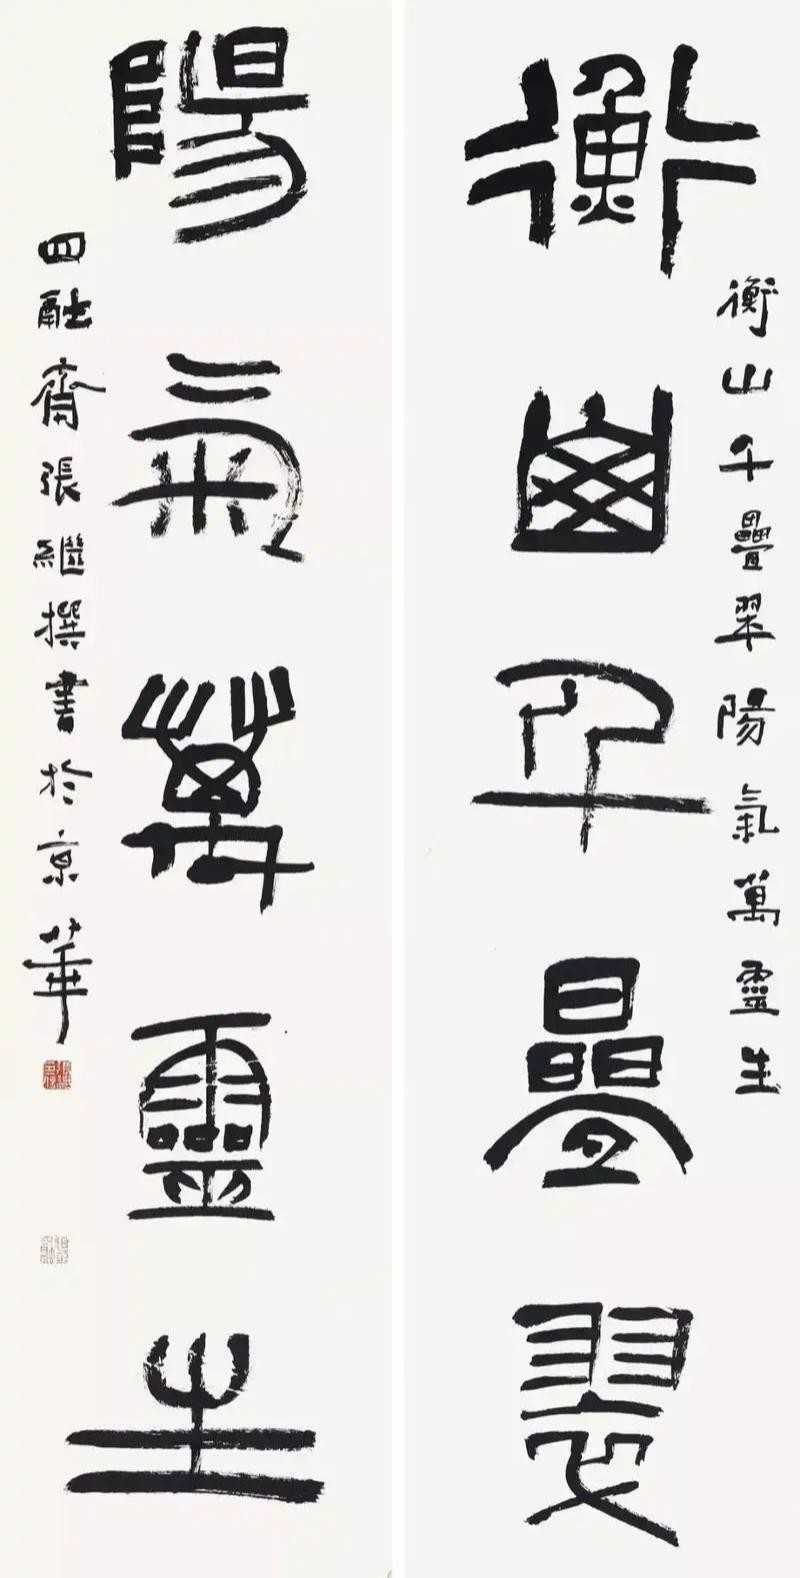 衡山千疊翠陽氣萬靈生
衡山千疊翠
陽氣萬靈生
四融齋張繼撰書於京華